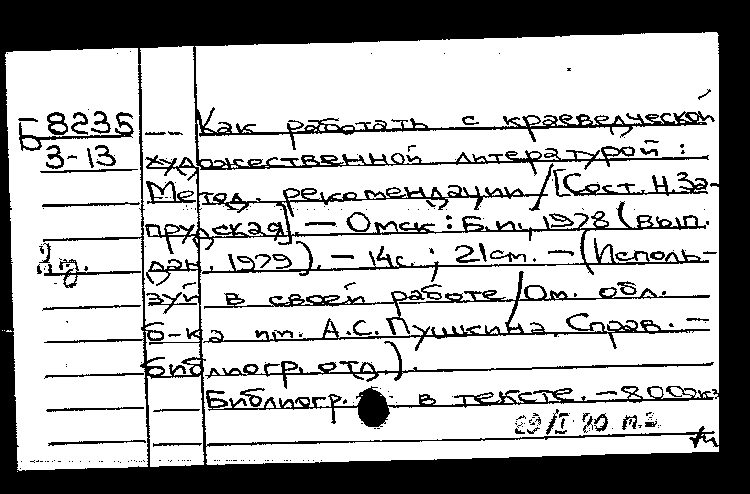 Б8235 Как работать с краеведческой
3-13 художественной литературой :
Метод. рекомендации /[Сост. Н.За-
прудская]. — Омск : Б.и., 1978 (вып.
дан. 1979). — 14с. ; 21см. — (Исполь-
зуй в своей работе /Ом. обл.
б-ка им. А.С.Пушкина. Справ. —
библиогр. отд.).
Библиогр. в тексте. — 800экз
29/I 80